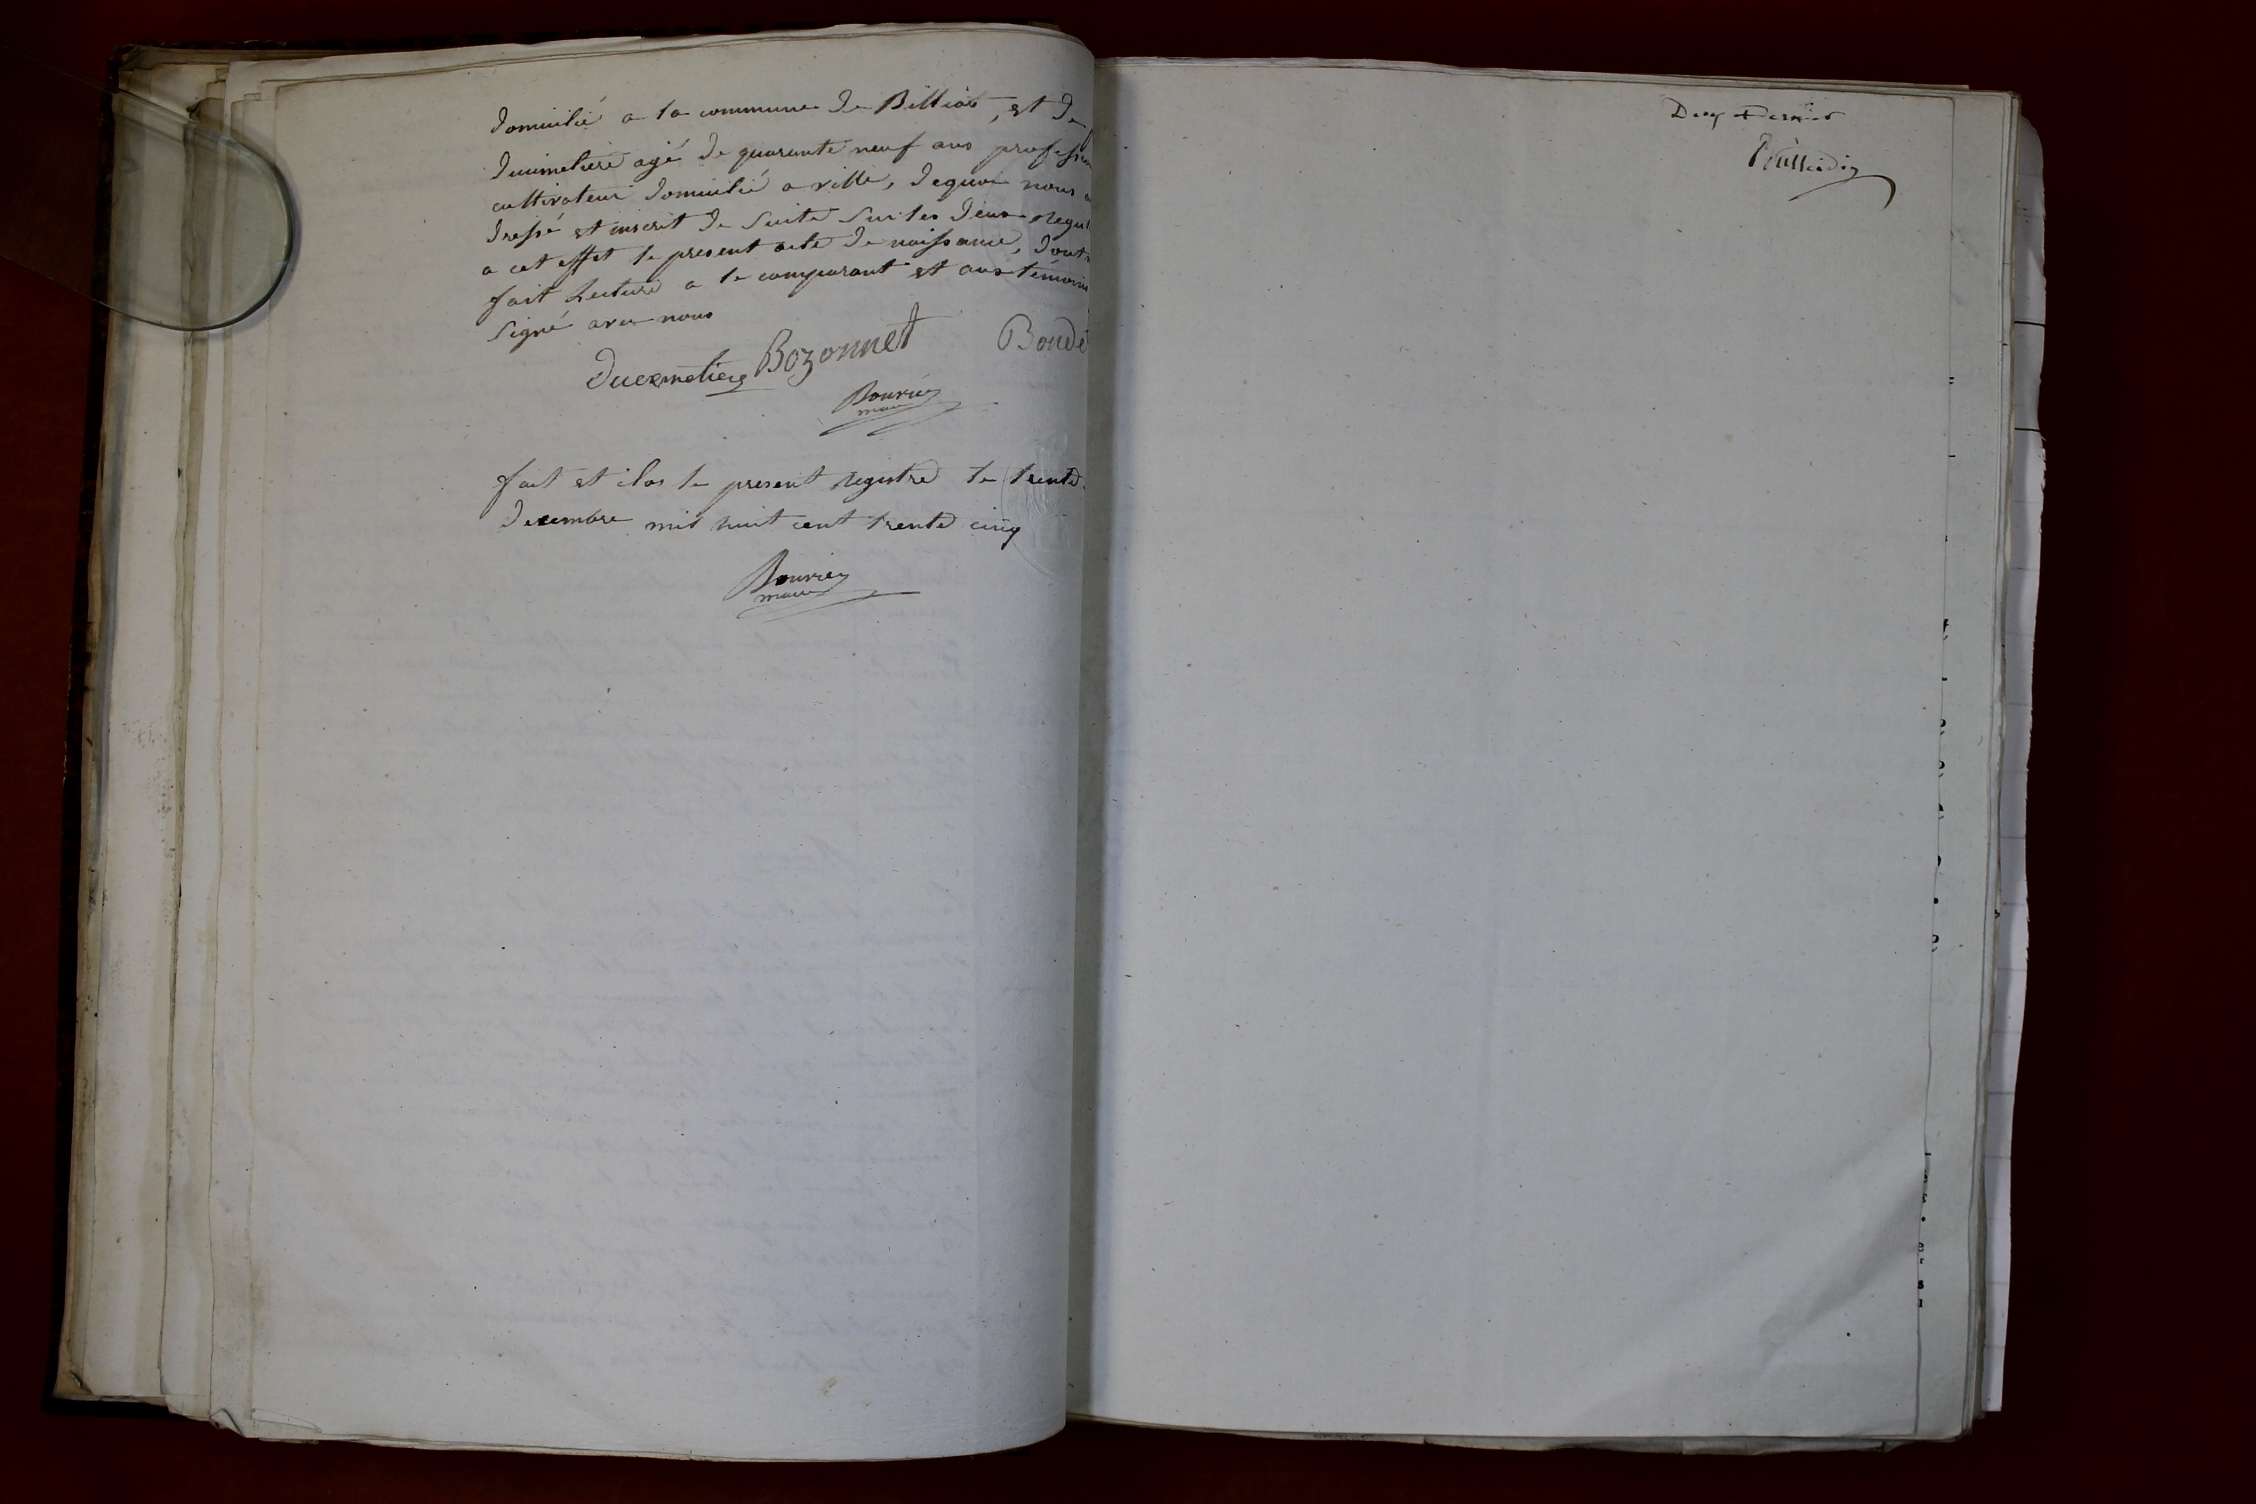 domicilié a la commune de Billiat, et de
Ducimetiere agé de quarante neuf ans profession
cultivateur domicilié a ville, dequoi nous a
dressé et inscrit de suite sur les deux regist
a cet effet le present acte de naissance, dont
fait Lecture a le comparant et aux témoins
signé avec nous
Ducemetiere Bozonnet Bonde
Bouvier
maire
fait et clos le present registre le trente
decembre mil huit cent trente cinq
Bouvier
maire
Dernier